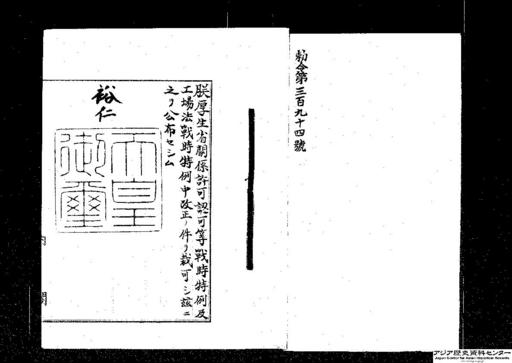 勅令第三百九十四號
朕厚生省關係許可認可等戰時特例及
工場法戰時特例中改正ノ件ヲ裁可シ茲ニ
之ヲ公布セシム
裕仁
天皇
御璽
内閣
アジア歴史資料センター
Japan Center for Asian Historical Records